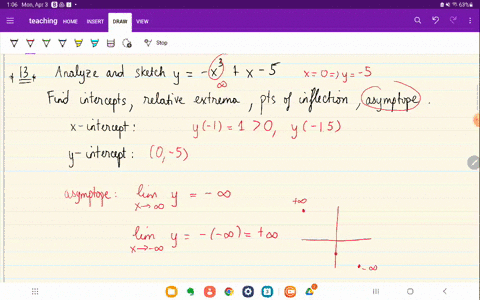 1:06 Mon, Apr 3
63%
teaching HOME INSERT DRAW VIEW
Stop
+ 13. Analyze and sketch y = -x³ + x - 5 x=0 => y = -5
∞
Find intercepts, relative extrema, pts of inflection, asymptope.
x-intercept: y(-1) = 1 > 0, y(-1.5)
y-intercept: (0, -5)
asymptope: lim y = -∞
x→∞
+∞
lim y = -(-∞) = +∞
x→-∞
-∞